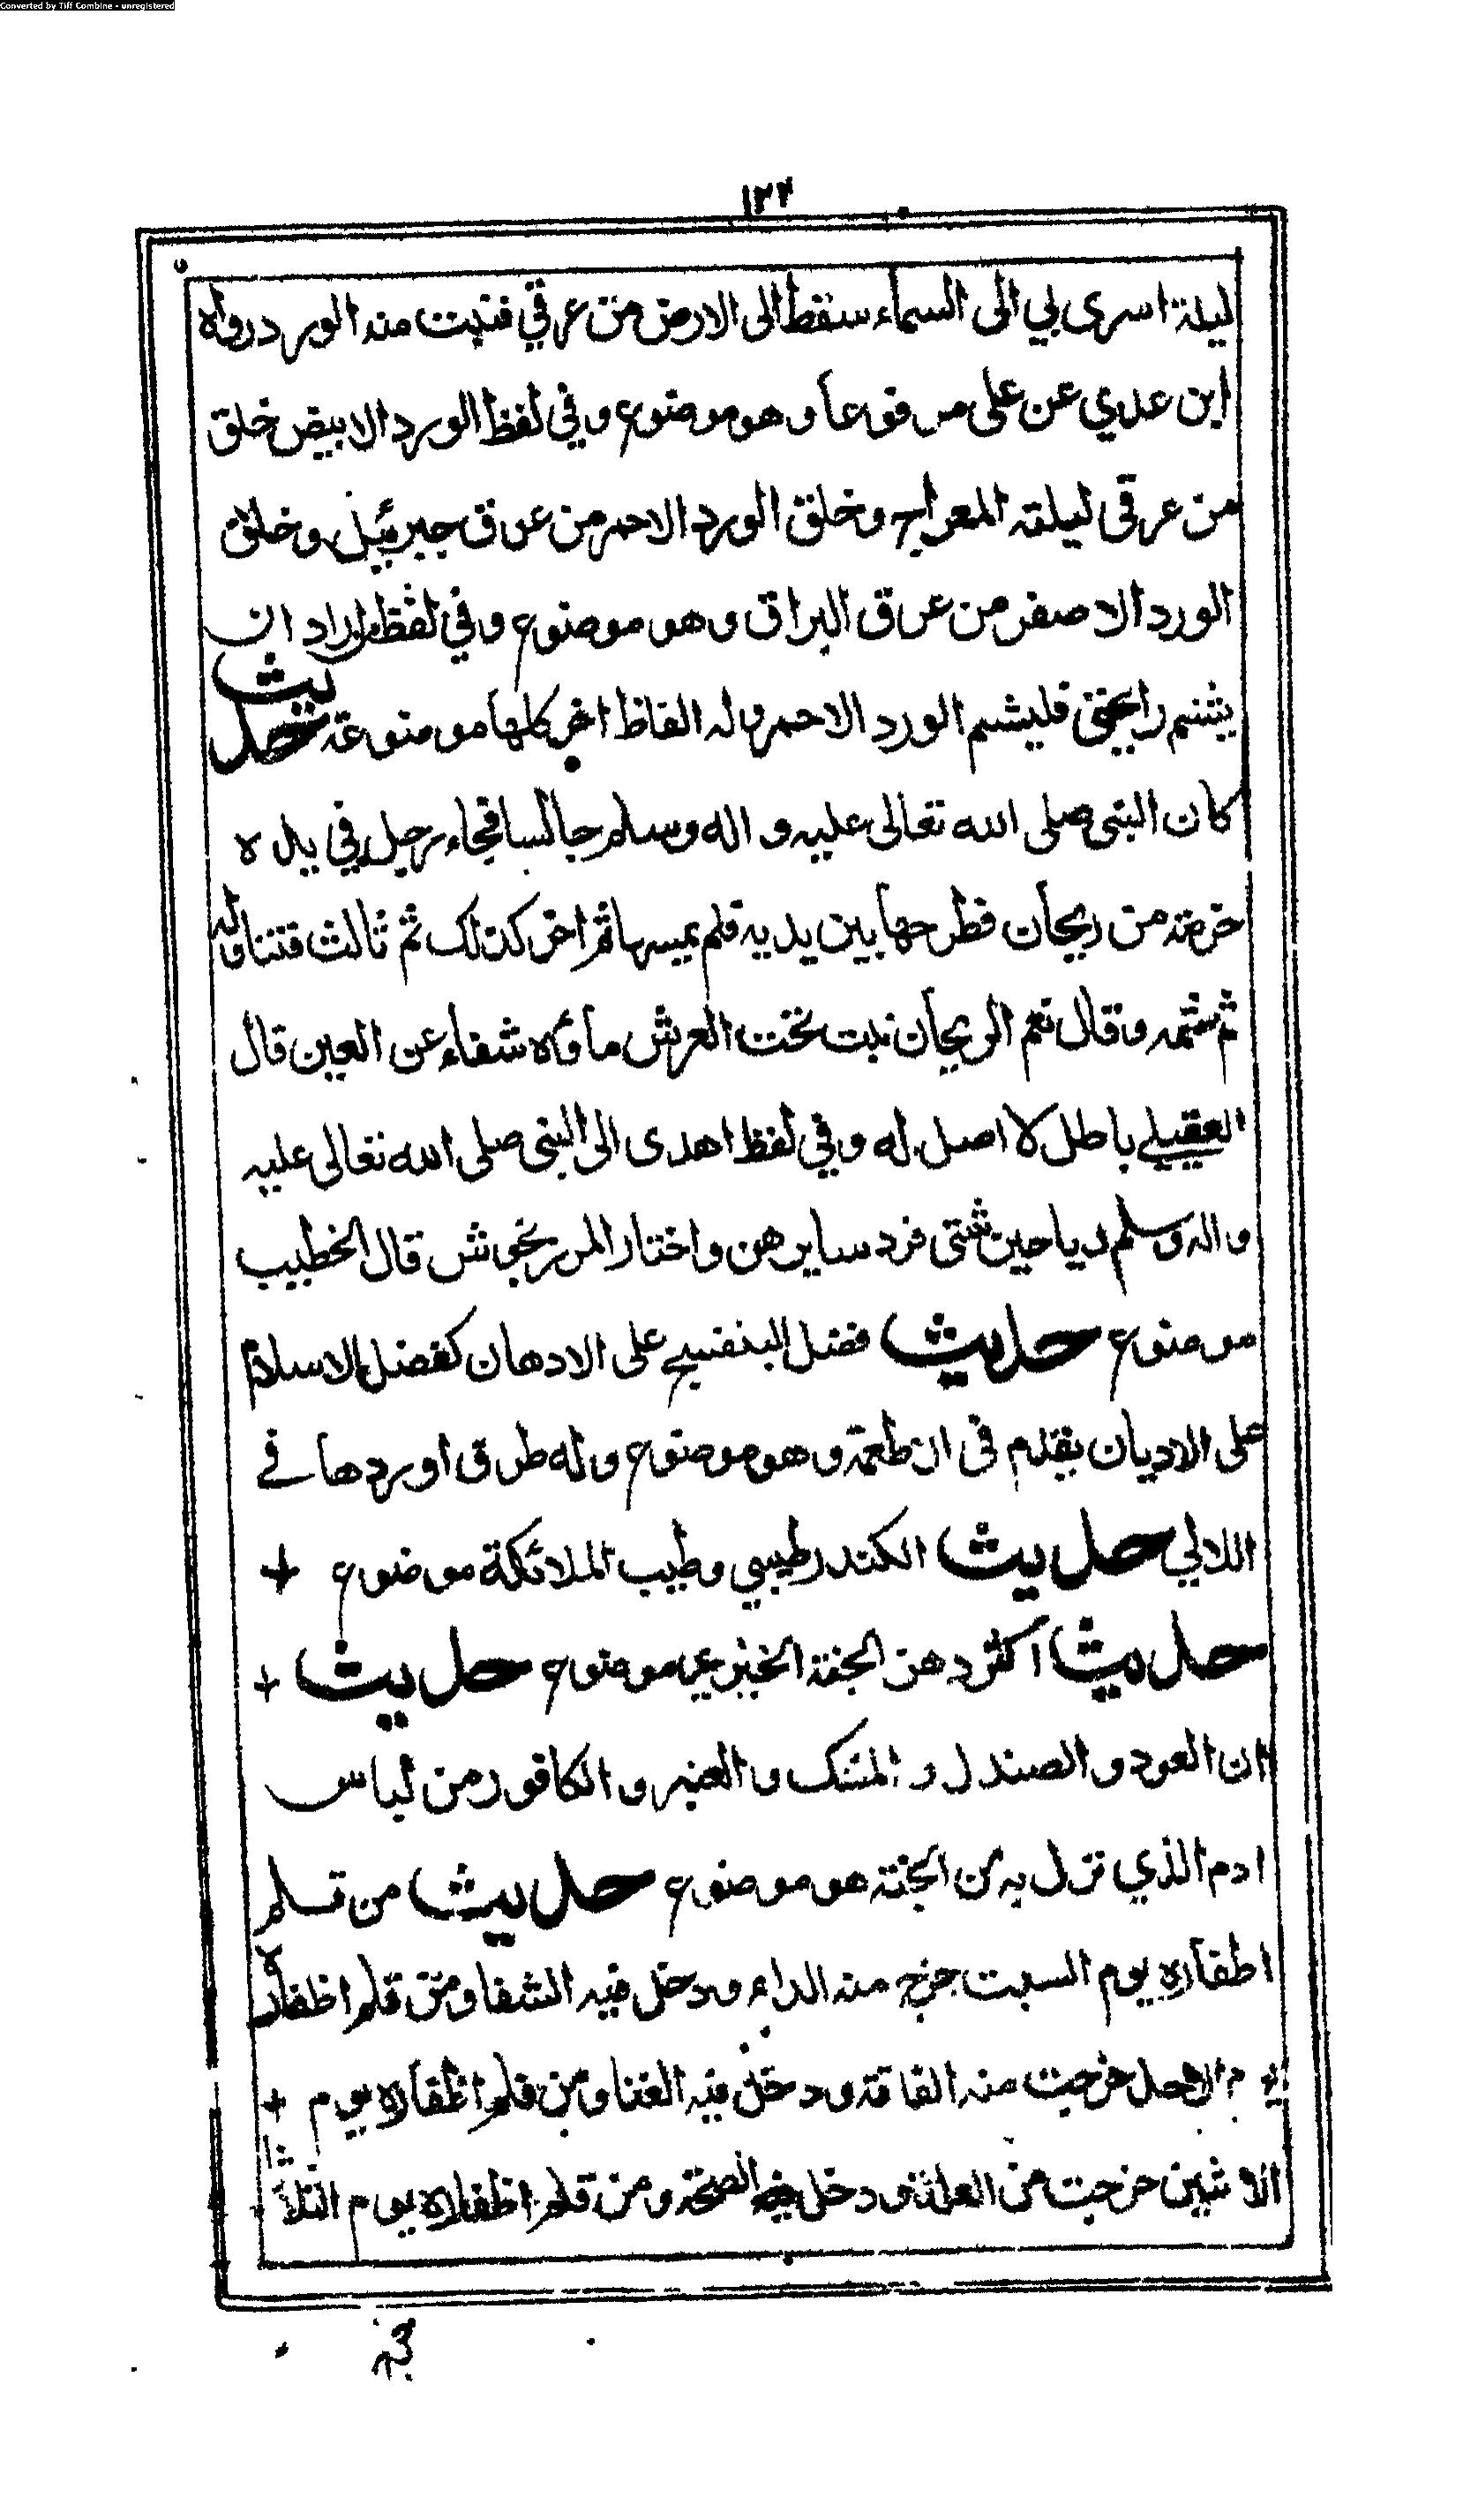 Converted by Tiff Combine - unregistered
١٢٢
ليلة اسرى بي الى السماء سقط الى الارض من عرقي فنبت منه الورد رواه
ابن عدي عن على مرفوعا وهو موضوع وفي لفظ الورد الابيض خلق
من عرقى ليلته المعراج وخلق الورد الاحمر من عرق جبرئيل وخلق
الورد الاصفر من عرق البراق وهو موضوع وفي لفظ اراد ان
يشم رايحتى فليشم الورد الاحمر وله الفاظ اخر كلها موضوعة حديث
كان النبى صلى الله تعالى عليه و اله وسلم جالسا فجاء رجل وفي يده
حزمة من ريحان فطرحها بين يديه فلم يمسها ثم اخر كذلك ثم ثالث فتناوله
ثم شمه وقال نعم الريحان نبت تحت العرش ماؤه شفاء عن العين قال
العقيلے باطل لا اصل له وفي لفظ اهدى الى النبى صلى الله تعالى عليه
واله وسلم رياحين شتى فرد سايرهن واختار المرزنجوش قال الخطيب
موضوع حديث فضل البنفسج على الادهان كفضل الاسلام
على الاديان بقدم فى الاطعمة وهو موضوع وله طرق اوردها فے
اللالي حديث الكندر طيبي وطيب الملائكة موضوع +
حديث اكثر دهن الجنة الخيري موضوع حديث +
ان العود و الصندل و المسك و العنبر و الكافور من لباس
ادم الذي نزل به من الجنة هو موضوع حديث من قلم
اظفاره يوم السبت خرج منه الداء ودخل فيه الشفا ومن قلم اظفاره
يوم الاحد خرجت منه الفاقة ودخل فيه الغنا ومن قلم اظفاره يوم +
الاثنين خرجت من العلة ودخل فيه الصحة ومن قلم اظفاره يوم الثلاثا